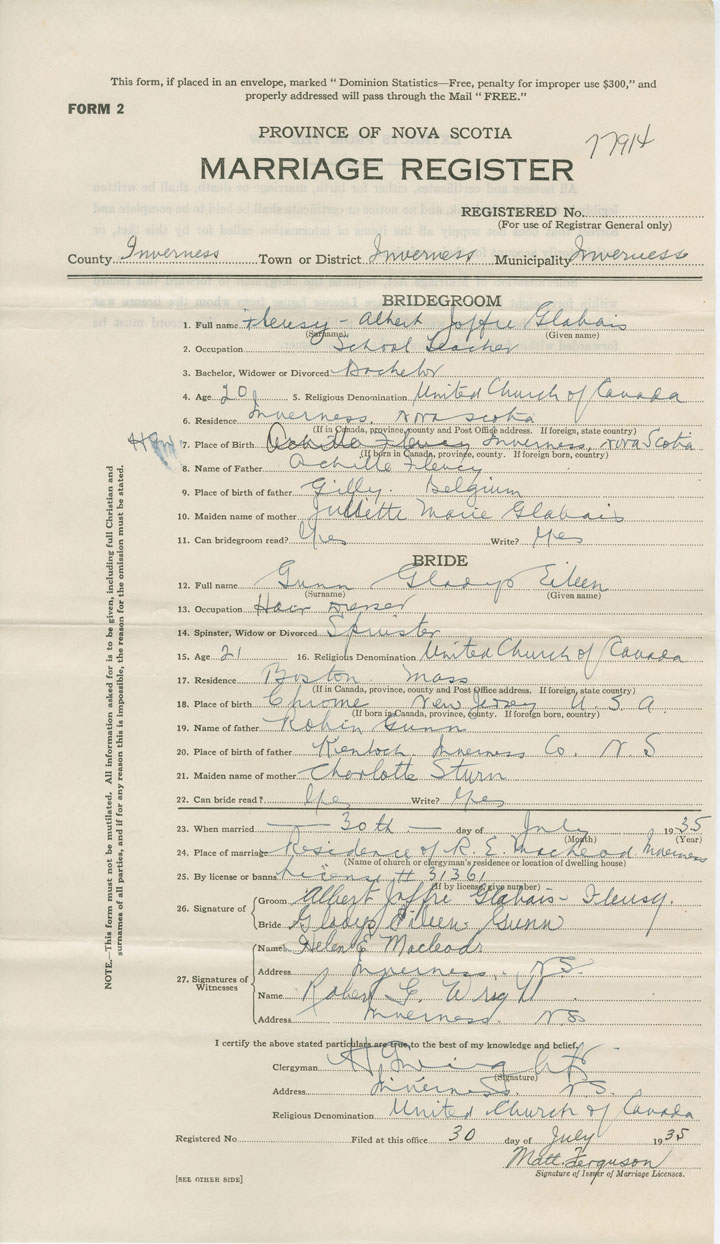 This form, if placed in an envelope, marked " Dominion Statistics—Free, penalty for improper use $300," and
properly addressed will pass through the Mail " FREE."
FORM 2
PROVINCE OF NOVA SCOTIA
77914
MARRIAGE REGISTER
REGISTERED No.
(For use of Registrar General only)
County Inverness Town or District Inverness Municipality Inverness
BRIDEGROOM
1. Full name Fleusy - Albert Joffre Glabais
(Surname) (Given name)
2. Occupation School Teacher
3. Bachelor, Widower or Divorced Bachelor
4. Age 20 5. Religious Denomination United Church of Canada
6. Residence Inverness, Nova Scotia
(If in Canada, province, county and Post Office address. If foreign, state country)
7. Place of Birth Achille Fleusy Inverness, Nova Scotia
(If born in Canada, province, county. If foreign born, country)
8. Name of Father Achille Fleusy
9. Place of birth of father Gilly. Belgium
10. Maiden name of mother Juliette Marie Glabais
11. Can bridegroom read? Yes Write? Yes
BRIDE
12. Full name Gunn Gladys Eileen
(Surname) (Given name)
13. Occupation Hair Dresser
14. Spinster, Widow or Divorced Spinster
15. Age 21 16. Religious Denomination United Church of Canada
17. Residence Boston Mass
(If in Canada, province, county and Post Office address. If foreign, state country)
18. Place of birth Chrome New Jersey U. S. A.
(If born in Canada, province, county. If foreign born, country)
19. Name of father Robin Gunn
20. Place of birth of father Kenloch. Inverness Co. N. S
21. Maiden name of mother Charlotte Sturn
22. Can bride read? Yes Write? Yes
23. When married 30th day of July 1935
(Month) (Year)
24. Place of marriage Residence of R. E. MacLeod Inverness
(Name of church or clergyman's residence or location of dwelling house)
25. By license or banns License # 31361
(If by license, give number)
26. Signature of
Groom Albert Joffre Glabais - Fleusy.
Bride Gladys Eileen Gunn
27. Signatures of Witnesses
Name Helen E Macleod
Address Inverness, N.S.
Name Robert G. Wright
Address Inverness. N.S
I certify the above stated particulars are true to the best of my knowledge and belief.
Clergyman Wright
(Signature)
Address Inverness N.S.
Religious Denomination United Church of Canada
Registered No. Filed at this office 30 day of July 1935
Matt. Ferguson
Signature of Issuer of Marriage Licenses.
[SEE OTHER SIDE]
NOTE.—This form must not be mutilated. All information asked for is to be given, including full Christian and
surnames of all parties, and if for any reason this is impossible, the reason for the omission must be stated.